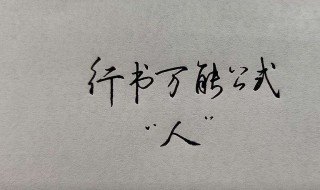 行书万能公式
“人”